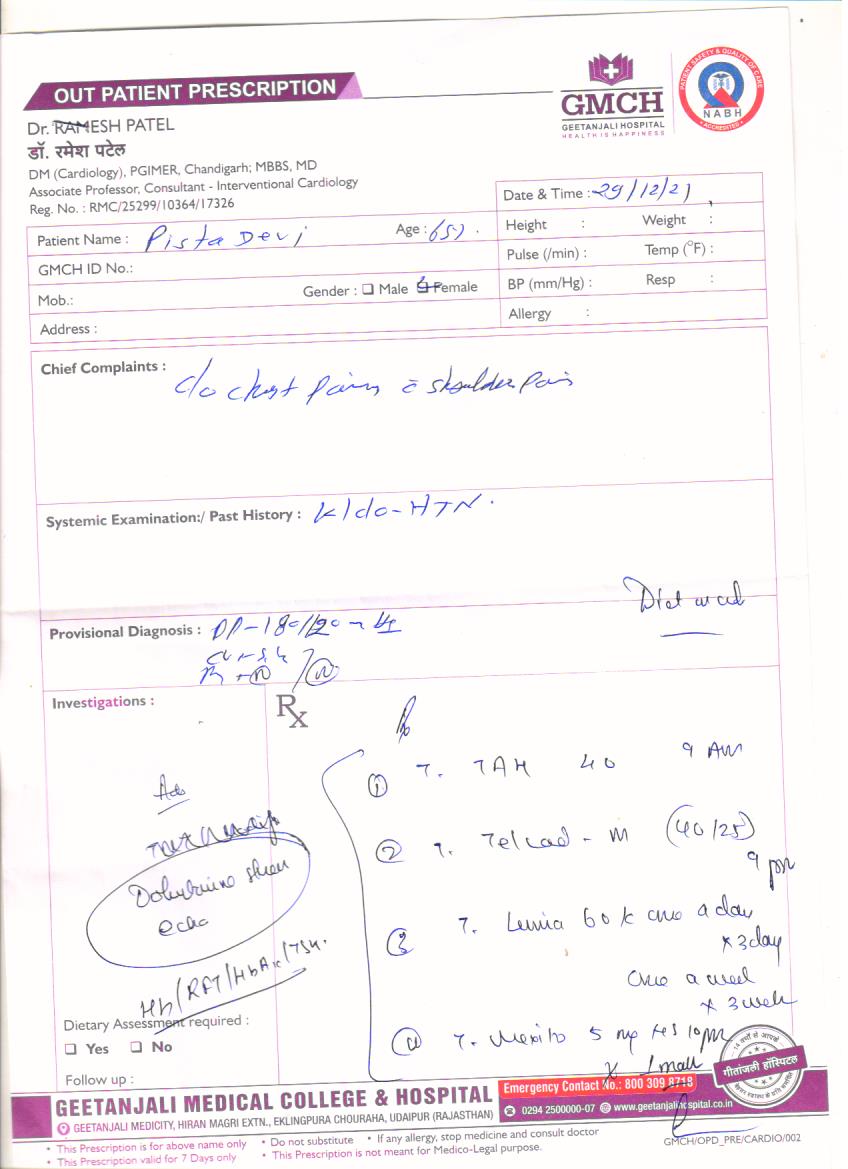 OUT PATIENT PRESCRIPTION
GMCH
GEETANJALI HOSPITAL
HEALTH IS HAPPINESS
PATIENT SAFETY & QUALITY OF CARE
NABH
ACCREDITED
Dr. RAMESH PATEL
डॉ. रमेश पटेल
DM (Cardiology), PGIMER, Chandigarh; MBBS, MD
Associate Professor, Consultant - Interventional Cardiology
Reg. No. : RMC/25299/10364/17326
Date & Time : 29/12/21
Patient Name : Pista Devi Age : 65y.
Height : Weight :
GMCH ID No.:
Pulse (/min) : Temp (°F) :
Mob.: Gender : Male Female
BP (mm/Hg) : Resp :
Address :
Allergy :
Chief Complaints :
c/o chest pain c shoulder pain
Systemic Examination:/ Past History : K/c/o - HTN.
Provisional Diagnosis : BP - 180/120
Investigations :
Rx
Adv
Dobutamine stress
echo
Hb/RFT/HbA1c/TSH.
① T. 40 9 AM
② T. Telcad - M (40/25)
9 pm
③ T. 60 k once a day
x 3 day
once a week
x 3 week
T. 5 mg 10 pm
Dietary Assessment required :
Yes No
Follow up :
गीतांजली हॉस्पिटल
GEETANJALI MEDICAL COLLEGE & HOSPITAL
GEETANJALI MEDICITY, HIRAN MAGRI EXTN., EKLINGPURA CHOURAHA, UDAIPUR (RAJASTHAN)
Emergency Contact No.: 800 309 8718
0294 2500000-07 www.geetanjalihospital.co.in
• This Prescription is for above name only • Do not substitute • If any allergy, stop medicine and consult doctor
• This Prescription valid for 7 Days only • This Prescription is not meant for Medico-Legal purpose.
GMCH/OPD_PRE/CARDIO/002